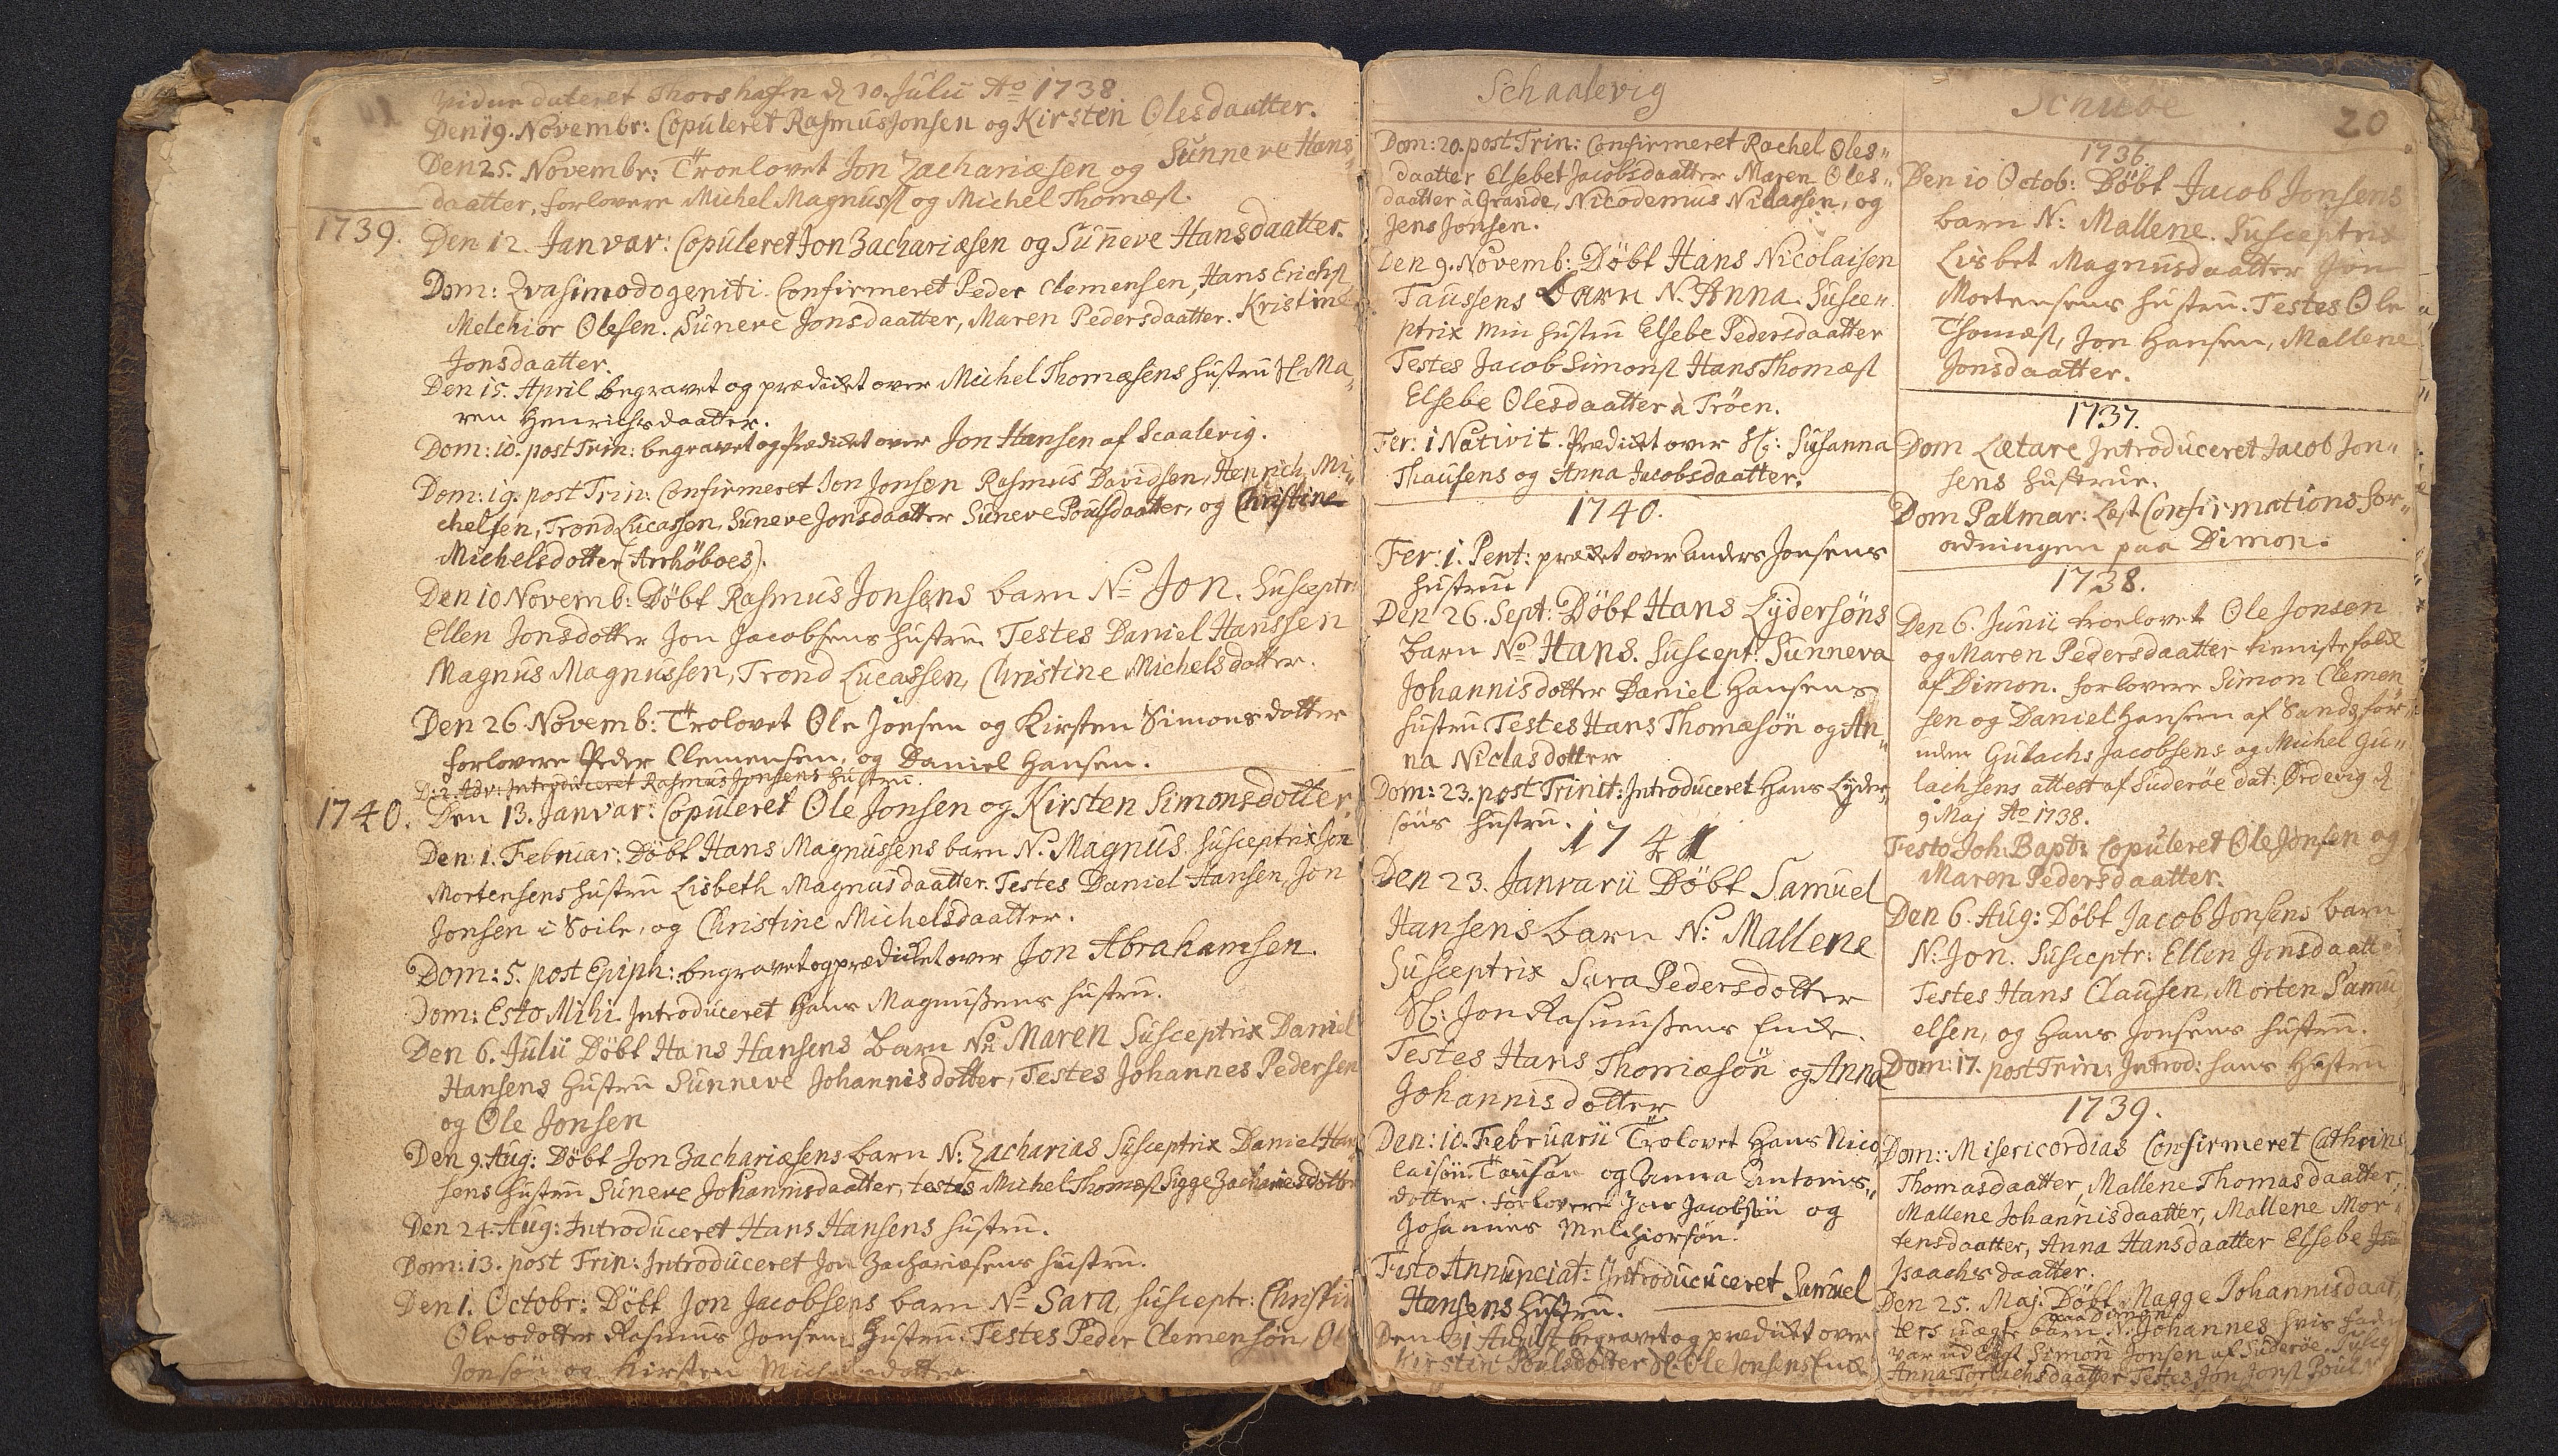 vidue dateret Thorshafn d 30. Julii Ao 1738
Den 19. Novembr: Copuleret Rasmus Jonsen og Kirsten Olesdaatter.
Den 25. Novembr: Troelovet Jon Zachariæsen og Sunneve Hans
daatter, forlovere Michel Magnusst og Michel Thomæst.
1739. Den 12. Janvar: Copuleret Jon Zachariæsen og Suneve Hansdaatter.
Dom: Qvasimodogeniti. Confirmeret Peder Clemensen, Hans Erichst
Melchior Olesen. Suneve Jonsdaatter, Maren Pedersdaatter. Kristine
Jonsdaatter.
Den 15. April begravet og prædicket over Michel Thomæsens hustru Sl. Ma"
ren Henrichsdaatter.
Dom: 10. post Trin: begravet og Prædicket over Jon Hansen af Scaalevig.
Dom: 19. post Trin: Confirmeret Jon Jonsen Rasmus Davidsen, Henrich Mi"
chelsen, Trond Lucassen, Suneve Jonsdaatter Suneve Poulsdaatter, og Christine
Michelsdotter (Arrhöboes).
Den 10 Novemb: Döbt Rasmus Jonsens barn N= Jon. Susceptr:
Ellen Jonsdotter Jon Jacobsens hustru. Testes Daniel Hanssen
Magnus Magnussen, Trond Lucassen, Christine Michelsdotter.
Den 26. Novemb: Trolovet Ole Jonsen og Kirsten Simonsdotter
forlovere Peder Clemensen, og Daniel Hansen.
D: 2. Adv: Introduceret Rasmus Jonsens hustru.
1740. Den 13. Janvar: Copuleret Ole Jonsen og Kirsten Simonsdotter
Den 1. Februar: Döbt Hans Magnussens barn N. Magnus. Susceptrix Jon
Mortensens hustru Lisbeth Magnusdaatter. Testes Daniel Hansen, Jon
Jonsen i Soile, og Christine Michelsdaatter.
Dom: 5. post Epiph: begravet og prædicket over Jon Abrahamsen.
Dom: Esto Mihi. Introduceret Hans Magnussens hustru.
Den 6. Julii Döbt Hans Hansens Barn No Maren Susceptrix Daniel
Hansens hustru Sunneve Johannisdotter, Testes Johannes Pedersen
og Ole Jonsen
Den 9. Aug: Döbt Jon Zachariæsens barn N: Zacharias Susceptrix Daniel Han"
sens hustru Suneve Johannisdaatter, testes Michel Thomæst Sigge Zachariesdotter
Den 24. Aug: Introduceret Hans Hansens hustru.
Dom: 13. post Trin: Introduceret Jon Zachariæsens hustru.
Den 1. Octobr: Döbt Jon Jacobsens barn N= Sara, Susceptr: Christin
Olesdotter Rasmus Jonsens hustru. Testes Peder Clemensön, Ol
Jonsön og Kirsten Michelsdotter
Schaalevig
Dom: 20. post Trin: Confirmeret Rachel Oles"
daatter Elsebet Jacobsdaatter Maren Oles"
daatter à Grande, Nicodemus Nilassen, og
Jens Jonsen.
Den 9. Novemb: Döbt Hans Nicolaisen
Taussens Barn N. Anna. Susce"
ptrix min hustru Elsebe Pedersdaatter
Testes Jacob Simonst Hans Thomæst
Elsebe Olesdaatter à Tröen.
Fer: 1 Nativit. Prædicket over Sl: Susanna
Thausens og Anna Jacobsdaatter.
1740.
Fer: 1. Pent: prædicket over Anders Jonsens
hustru
Den 26. Sept: Döbt Hans Lydersöns
Barn No Hans. Suscept: Sunneva
Johannisdotter Daniel Hansens
hustru Testes Hans Thomæsön og An"
na Niclasdotter
Dom: 23. post Trinit: Introduceret Hans Lyder"
söns hustru.
1741
Den 23. Janvarii Döbt Samuel
Hansens barn N: Mallene
Susceptrix Sara Pedersdotter
Sl: Jon Rasmussens Encke.
Testes Hans Thomæsön og Anna
Johannisdotter
Den: 10. Februarii Trolovet Hans Nico"
laisön Tausan og Anna Antonis"
dotter. Forlovere Jon Jacobsön og
Johannes Melchiorsön.
Festo Annunciat: Introduciceret Samuel
Hansens hustru.
Den 31 August begravet og prædicket over
Kirstin Poulsdotter Sl. Ole Jonsens Encke
Schuöe 20
1736.
Den 10 Octob: Döbt Jacob Jonsens
barn N: Mallene. Susceptrix
Lisbet Magnusdaatter Jon
Mortensens hustru. Testes Ole
Thomæst, Jon Hansen, Mallene
Jonsdaatter.
1737.
Dom Lætare Introduceret Jacob Jon"
sens hustrue.
Dom Palmar: Læst Confirmations for"
ordningen paa Dimon.
1738.
Den 6. Junii troelovet Ole Jonsen
og Maren Pedersdaatter tienistefolck
af Dimon. forlovere Simon Clemen
sen og Daniel Hansen af Sands for
uden Gulachs Jacobsens og Michel Gu"
lachsens attest af Suderöe dat: Ördevig d
9 Maj Ao 1738.
Festo Joh: Bapt: Copuleret Ole Jonsen og
Maren Pedersdaatter.
Den 6. Aug: Döbt Jacob Jonsens barn
N: Jon. Susceptr: Ellen Jonsdaatter
Testes Hans Clausen, Morten Samu
elsen, og Hans Jonsens hustru.
Dom: 17. post Trin: Introd: hans Hustru
1739.
Dom: Misericordias Confirmeret Cathrins
Thomasdaatter, Mallene Thomasdaatter,
Mallene Johannisdaatter, Mallene Mor"
tensdaatter, Anna Hansdaatter Elsebe
Isaachsdaatter.
Den 25. Maj: Döbt Magge Johannisdaat"
paa Dimon
ters uægte barn N. Johannes, hvis fader
var udlagt Simon Jonsen af Suderöe. Suscep
Anna Torlachsdaatter Testes Jon Jonst Poul